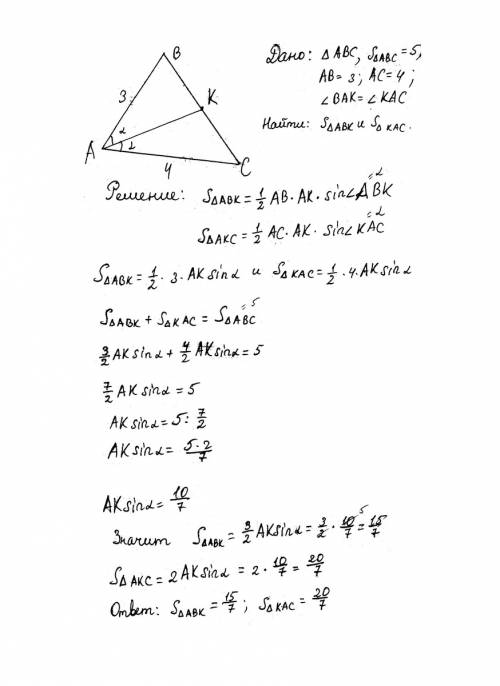 B
3
K
α
A
α
4
C
Дано: △ABC, S△ABC = 5,
AB = 3; AC = 4;
∠BAK = ∠KAC
Найти: S△ABK и S△KAC.
Решение: S△ABK = 1/2 AB · AK · sin∠ABK = α
S△AKC = 1/2 AC · AK · sin∠KAC = α
S△ABK = 1/2 · 3 · AK sinα и S△KAC = 1/2 · 4 · AK sinα
S△ABK + S△KAC = S△ABC = 5
3/2 AK sinα + 4/2 AK sinα = 5
7/2 AK sinα = 5
AK sinα = 5 : 7/2
AK sinα = 5·2/7
AK sinα = 10/7
Значит S△ABK = 3/2 AK sinα = 3/2 · 10/7 = 15/7
S△AKC = 2 AK sinα = 2 · 10/7 = 20/7
Ответ: S△ABK = 15/7; S△KAC = 20/7